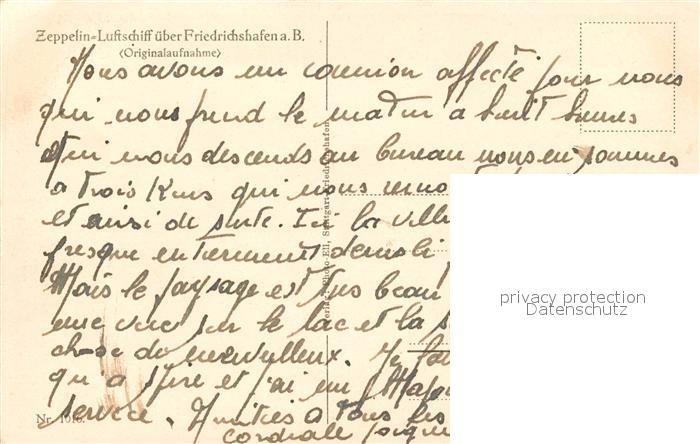 Zeppelin-Luftschiff über Friedrichshafen a. B.
(Originalaufnahme)
Nous avons un camion affecté pour nous
qui nous prend le matin a huit heures
et qui nous descends au bureau nous en sommes
a trois Kms qui nous
et ainsi de suite. Ici la ville
presque entierement demoli
Mais le paysage est tres beau
une vue sur le lac et la
chose de merveilleux. Je
qu'a et j'ai un Major
service. Amitiés a tous les
cordiale
Nr. 1016.
Verlag: Photo-Ell, Stuttgart-Friedrichshafen
privacy protection
Datenschutz